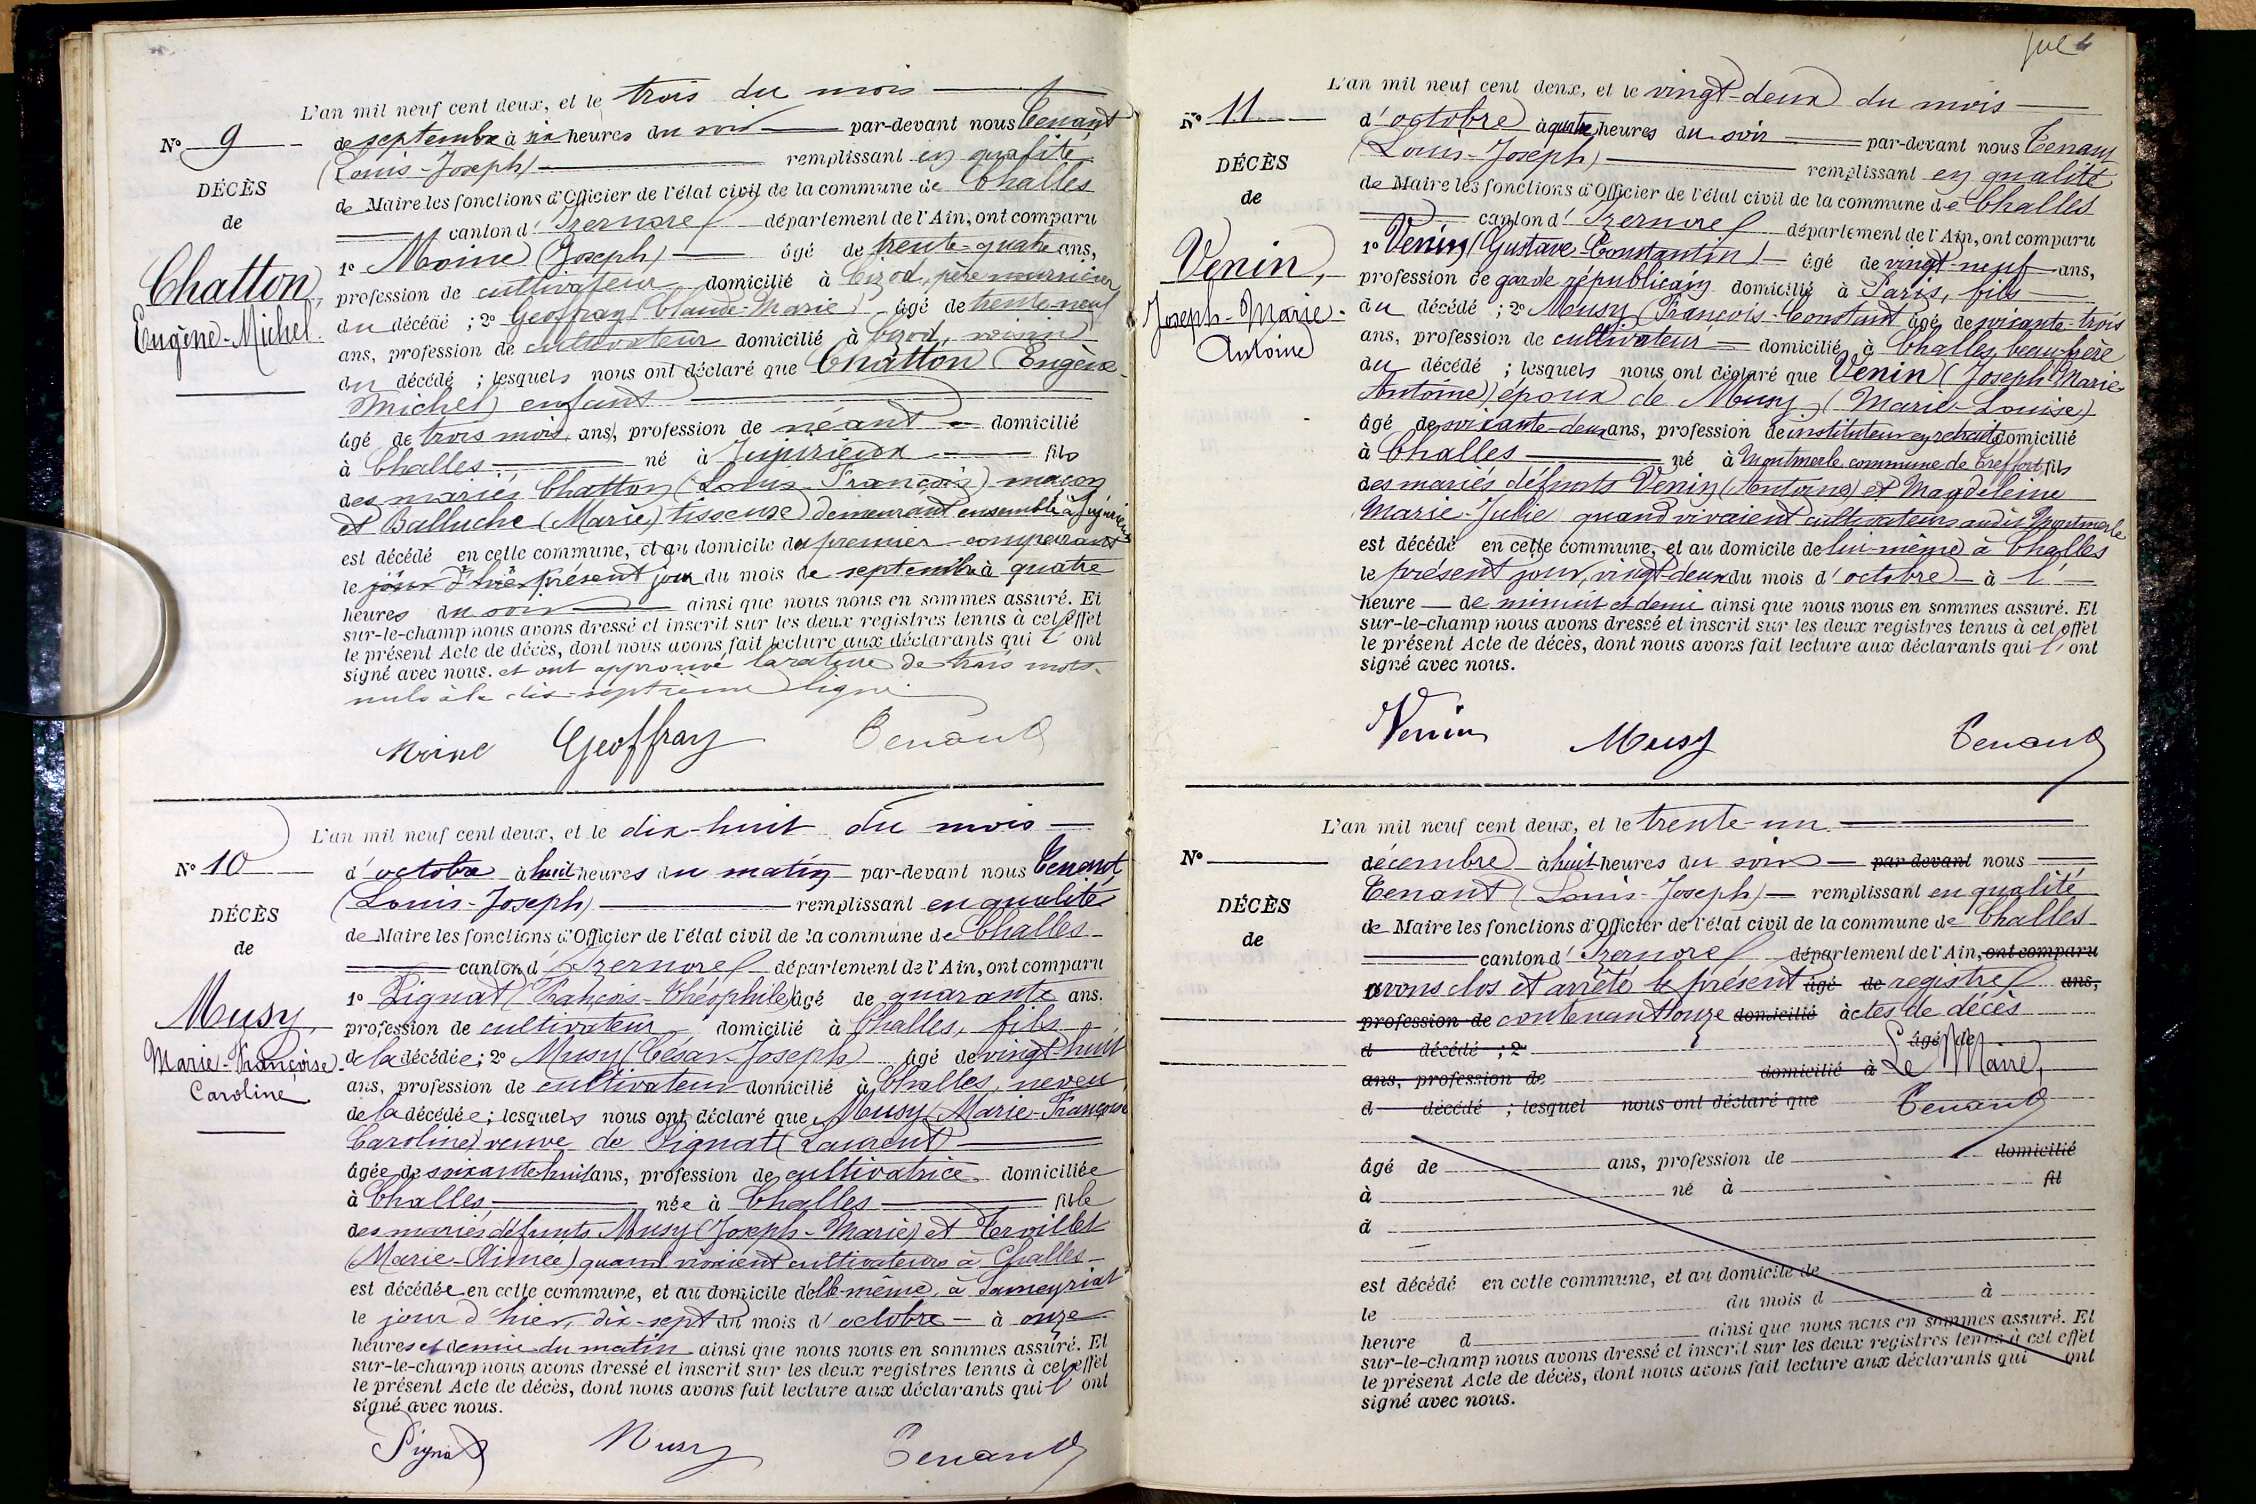 L'an mil neuf cent deux, et le trois du mois
N° 9
de septembre à six heures du soir par-devant nous Tenant
(Louis-Joseph) remplissant en qualité
DÉCÈS
de Maire les fonctions d'Officier de l'état civil de la commune de Challes
de
canton d'Izernore département de l'Ain, ont comparu
1° Moine (Joseph) âgé de trente-quatre ans,
Chatton,
profession de cultivateur domicilié à Cizod, père nourricier
Eugène-Michel.
du décédé ; 2° Geoffray (Claude-Marie) âgé de trente-neuf
ans, profession de cultivateur domicilié à Cizod, voisin
du décédé ; lesquels nous ont déclaré que Chatton (Eugène-
Michel) enfant
âgé de trois mois ans, profession de néant domicilié
à Challes né à Jujurieux fils
des mariés Chatton (Louis-François) maçon
et Balluche (Marie) tisseuse demeurant ensemble à Jujurieux
est décédé en cette commune, et au domicile du premier comparant
le jour d'hier présent jour du mois de septembre à quatre
heures du soir ainsi que nous nous en sommes assuré. Et
sur-le-champ nous avons dressé et inscrit sur les deux registres tenus à cet effet
le présent Acte de décès, dont nous avons fait lecture aux déclarants qui l'ont
signé avec nous. et ont approuvé la rature de trois mots
nuls à la dix-septième ligne.
Moine Geoffray Tenant
L'an mil neuf cent deux, et le dix-huit du mois
N° 10
d'octobre à huit heures du matin par-devant nous Tenant
(Louis-Joseph) remplissant en qualité
DÉCÈS
de Maire les fonctions d'Officier de l'état civil de la commune de Challes
de
canton d'Izernore département de l'Ain, ont comparu
1° Pignat (François-Théophile) âgé de quarante ans.
Musy,
profession de cultivateur domicilié à Challes, fils
Marie-Françoise-
Caroline
de la décédée ; 2° Musy (César-Joseph) âgé de vingt-huit
ans, profession de cultivateur domicilié à Challes, neveu
de la décédée ; lesquels nous ont déclaré que Musy (Marie-Françoise
Caroline) veuve de Pignat (Laurent)
âgée de soixante-huit ans, profession de cultivatrice domiciliée
à Challes née à Challes fille
des mariés défunts Musy (Joseph-Marie) et Tervillet
(Marie-Aimée) quand vivaient cultivateurs à Challes
est décédée en cette commune, et au domicile d'elle-même, à Sameyriat
le jour d'hier, dix-sept du mois d'octobre à onze
heures et demie du matin ainsi que nous nous en sommes assuré. Et
sur-le-champ nous avons dressé et inscrit sur les deux registres tenus à cet effet
le présent Acte de décès, dont nous avons fait lecture aux déclarants qui l'ont
signé avec nous.
Pignat Musy Tenant
L'an mil neuf cent deux, et le vingt-deux du mois
N° 11
d'octobre à quatre heures du soir par-devant nous Tenant
(Louis-Joseph) remplissant en qualité
DÉCÈS
de Maire les fonctions d'Officier de l'état civil de la commune de Challes
de
canton d'Izernore département de l'Ain, ont comparu
1° Venin (Gustave-Constantin) âgé de vingt-neuf ans,
Venin,
profession de garde républicain domicilié à Paris, fils
Joseph-Marie-
Antoine
du décédé ; 2° Musy (François-Constant) âgé de soixante-trois
ans, profession de cultivateur domicilié à Challes, beau-frère
du décédé ; lesquels nous ont déclaré que Venin (Joseph-Marie-
Antoine) époux de Musy (Marie-Louise)
âgé de soixante-deux ans, profession de instituteur en retraite domicilié
à Challes né à Montmerle, commune de Treffort, fils
des mariés défunts Venin (Antoine) et Magdeleine
Marie-Julie quand vivaient cultivateurs audit Montmerle
est décédé en cette commune, et au domicile de lui-même à Challes
le présent jour, vingt-deux du mois d'octobre à l'
heure de minuit et demi ainsi que nous nous en sommes assuré. Et
sur-le-champ nous avons dressé et inscrit sur les deux registres tenus à cet effet
le présent Acte de décès, dont nous avons fait lecture aux déclarants qui l'ont
signé avec nous.
Venin Musy Tenant
L'an mil neuf cent deux, et le trente-un
N°
décembre à huit heures du soir par-devant nous
Tenant (Louis-Joseph) remplissant en qualité
DÉCÈS
de Maire les fonctions d'Officier de l'état civil de la commune de Challes
de
canton d'Izernore département de l'Ain, ont comparu
avons clos et arrêté le présent âgé de registre ans,
profession de contenant onze domicilié actes de décès
d décédé ; 2° âgé de
ans, profession de domicilié à Le Maire,
d décédé ; lesquel nous ont déclaré que Tenant
âgé de ans, profession de domicilié
à né à fil
d
est décédé en cette commune, et au domicile de
le du mois d à
heure d ainsi que nous nous en sommes assuré. Et
sur-le-champ nous avons dressé et inscrit sur les deux registres tenus à cet effet
le présent Acte de décès, dont nous avons fait lecture aux déclarants qui ont
signé avec nous.